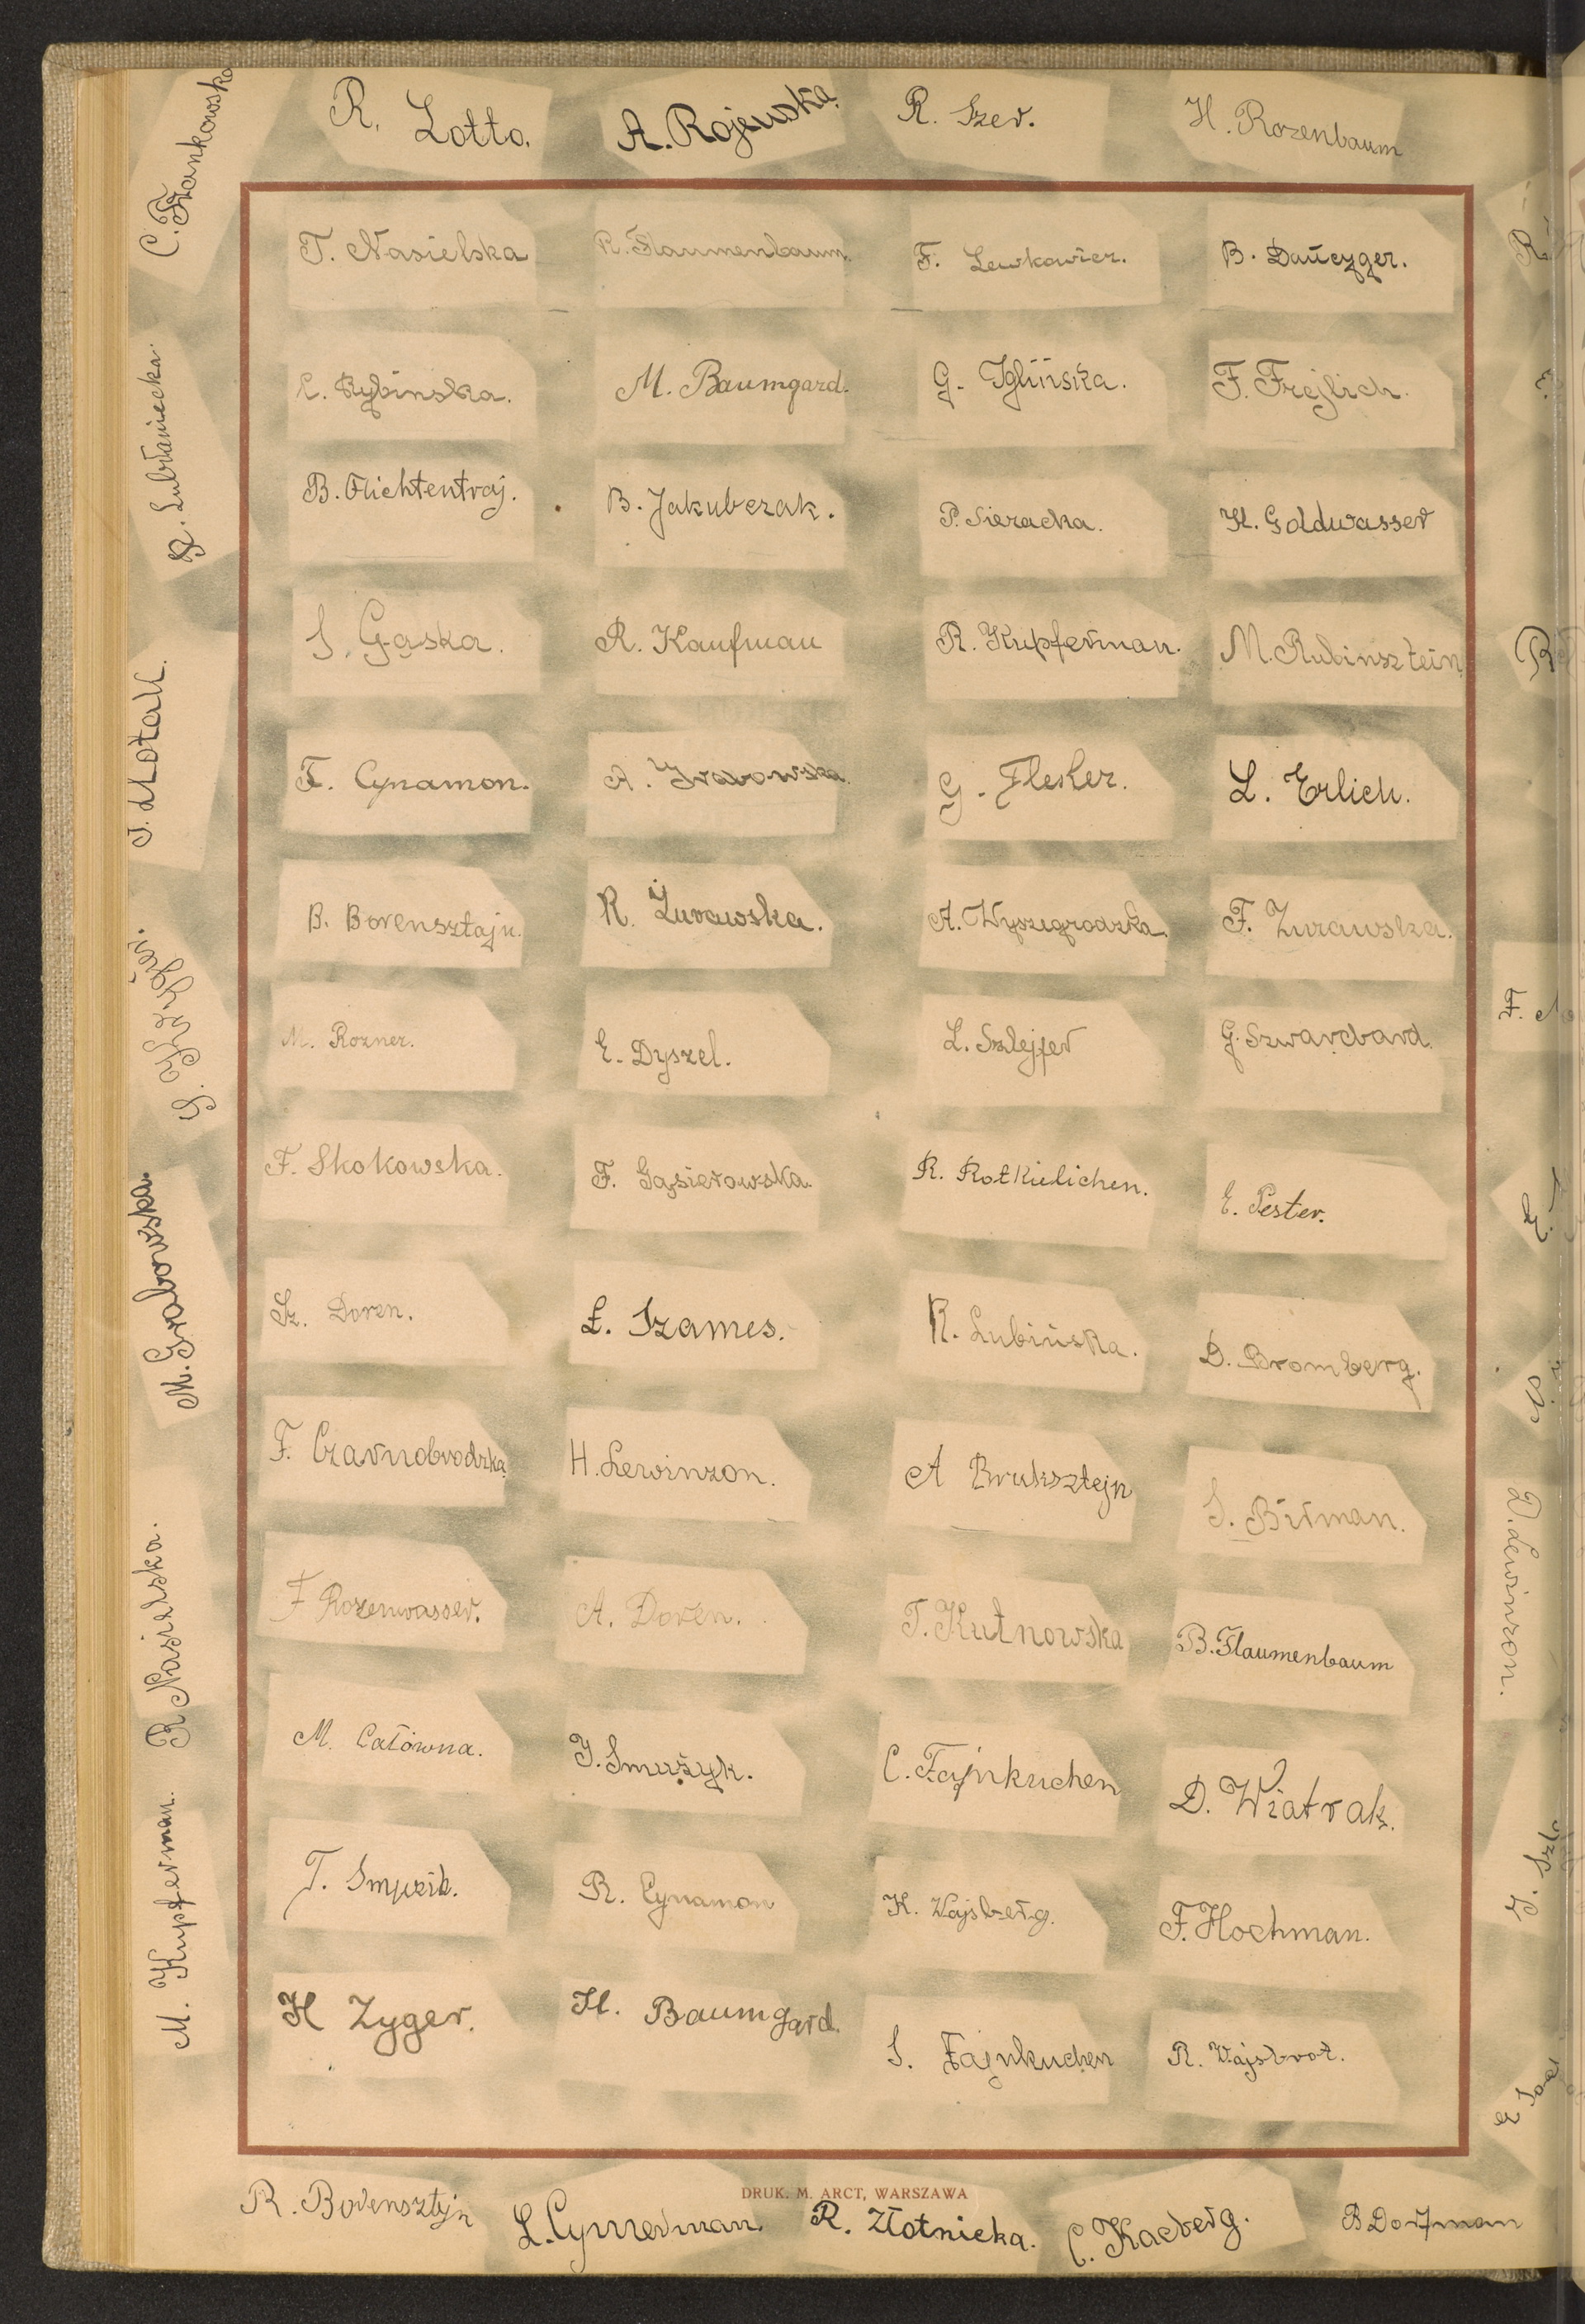 C. Frankowska
R. Lotto.
A. Rojewska.
R. Szer.
H. Rozenbaum
T. Nasielska
R. Flaumenbaum.
F. Lewkowicz.
B. Dańczyger.
C. Rybinska.
M. Baumgard.
G. Iglińska.
F. Frejlich.
B. Flichtentrej.
B. Jakubczak.
P. Sieracka.
H. Goldwasser
S. Gąska.
R. Kaufman
R. Kupferman.
M. Rubinsztein
F. Cynamon.
A. Grabowska.
G. Fleker.
L. Erlich.
B. Borensztajn.
R. Żurawska.
A. Wyszegrodzka.
F. Żurawska.
M. Rozner.
E. Dyszel.
L. Szlejfer
G. Szwarcbard.
F. Skokowska.
F. Gąsierowska.
R. Rotkielichen.
E. Pester.
Sz. Doren.
Ł. Szames.
R. Lubińska.
D. Bromberg.
F. Czarnobrodzka
H. Lewinzon.
A Bruksztejn
S. Birman.
F Rozenwasser.
A. Doren.
T. Kutnowska
B. Flaumenbaum
M. Całówna.
J. Smużyk.
C. Fajnkuchen
D. Wiatrak.
T.
R. Cynamon
K. Wajsberg.
F. Hochman.
H Zyger.
H. Baumgard.
S. Fajnkuchen
R. Wajsbrot.
R. Lubraniecka.
J. Motall.
M. Grabowska.
R Nasielska.
M. Kupferman.
D. Lewinzon.
DRUK. M. ARCT, WARSZAWA
R. Borensztejn
L. Cymerman.
R. Złotnicka.
C. Kacberg.
B Dorfman